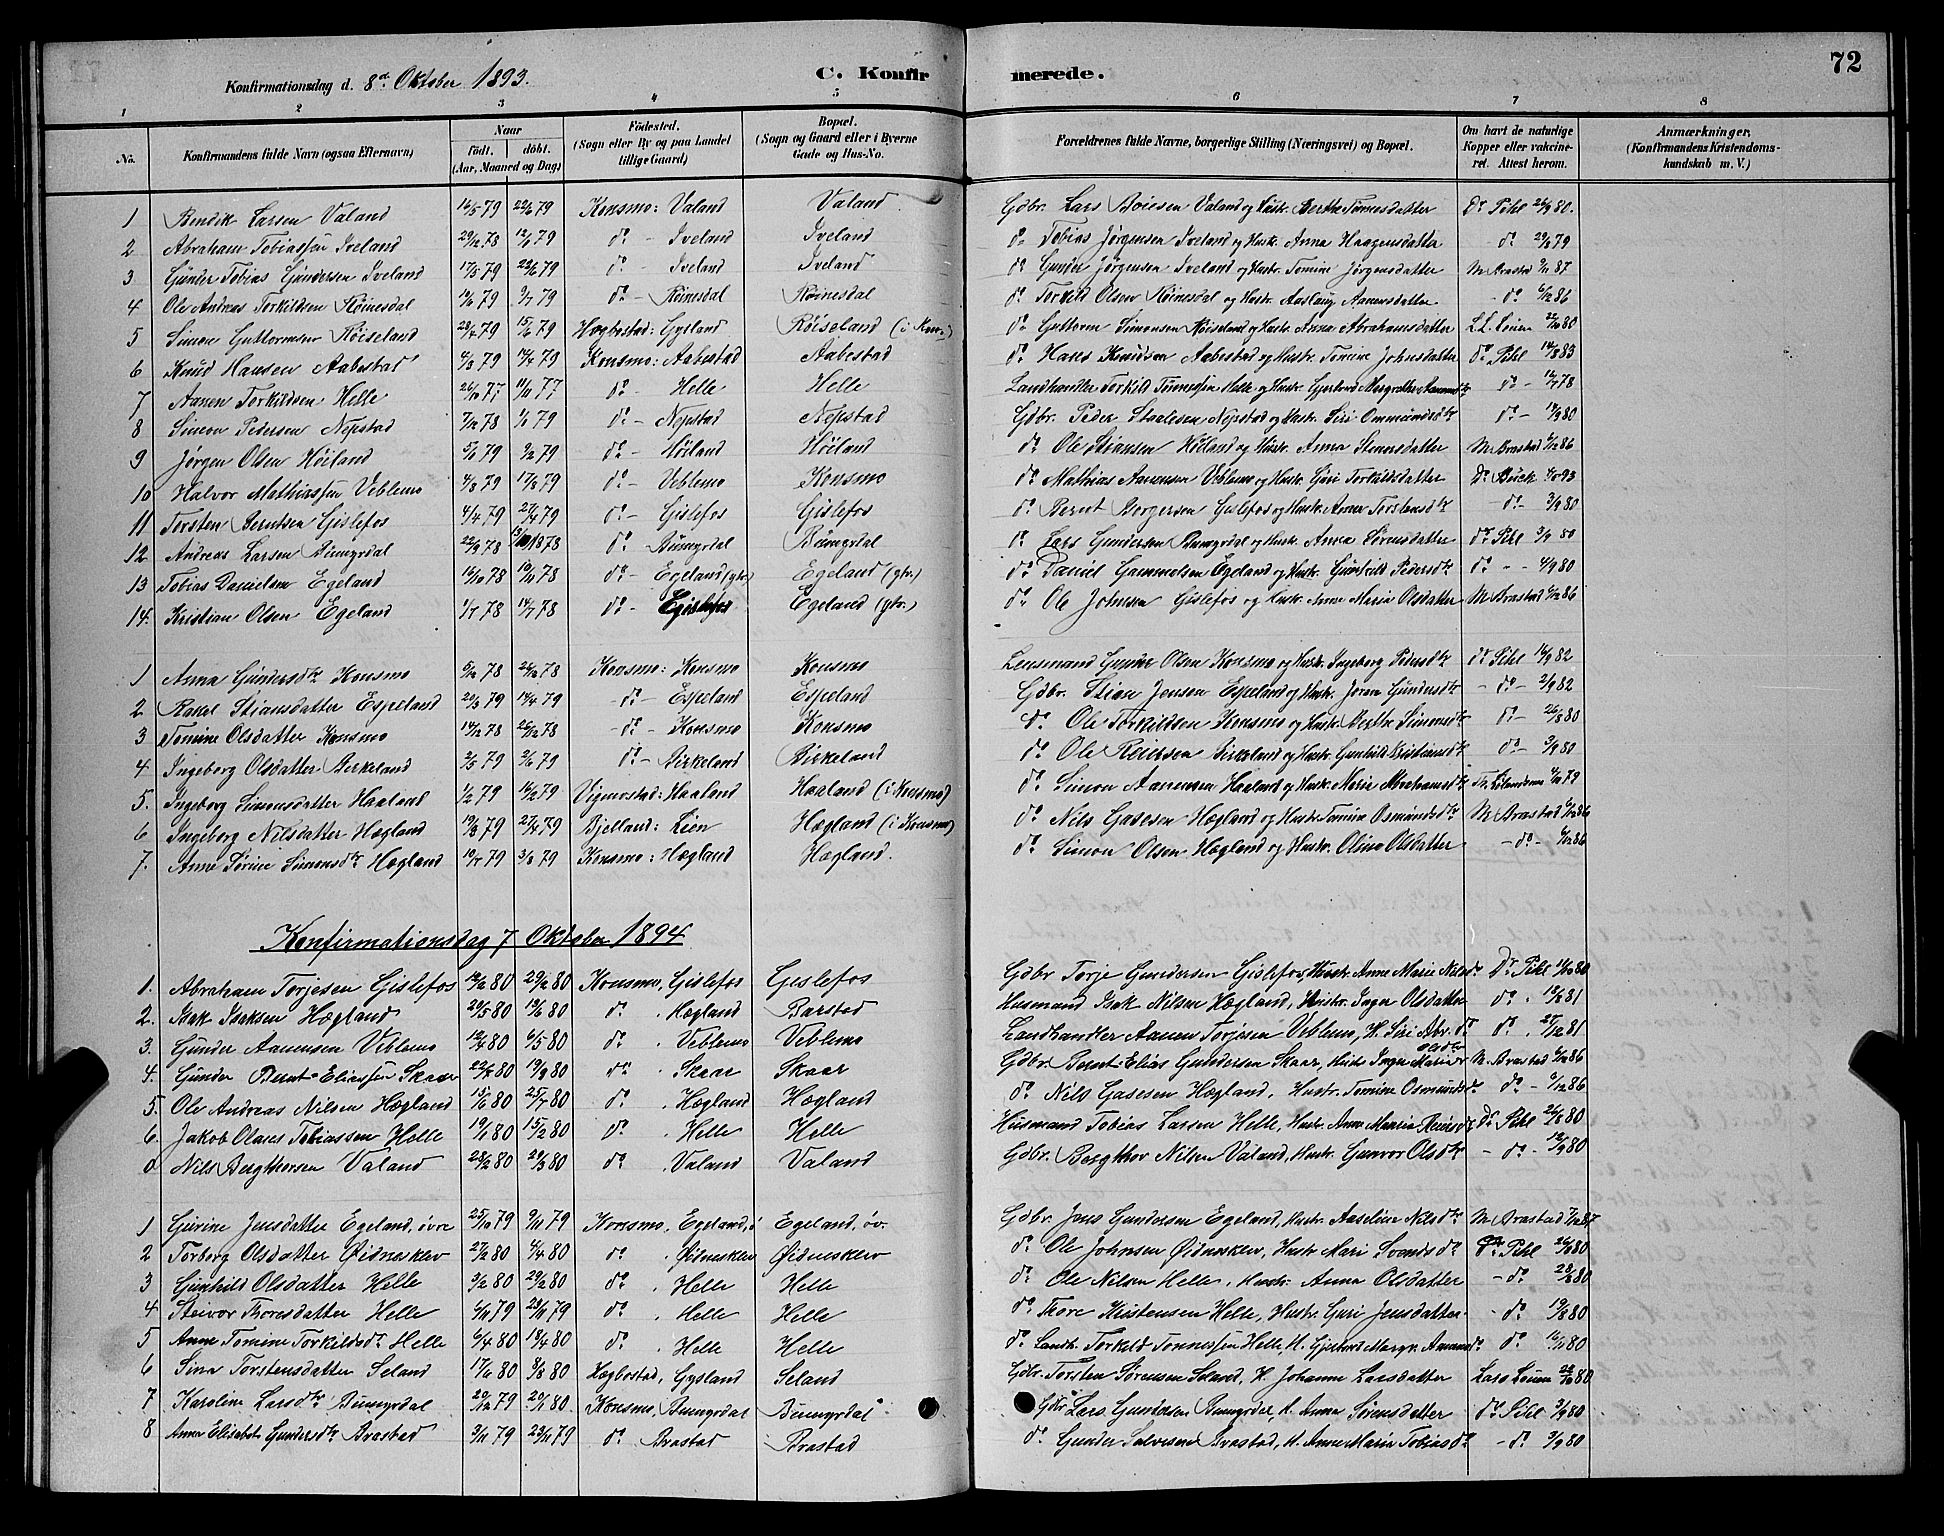 72
C. Konfirmerede.
Konfirmationsdag d. 8de Oktober 1893.
1 2 3 4 5 6 7 8
No. Konfirmandens fulde Navn (ogsaa Efternavn) Naar födt. döbt. (Aar, Maaned og Dag) Födested. (Sogn eller By og paa Landet tillige Gaard) Bopæl. (Sogn og Gaard eller i Byerne Gade og Hus-No. Forældrenes fulde Navne, borgerlige Stilling (Næringsvei) og Bopæl. Om havt de naturlige Kopper eller vakcineret. Attest herom. Anmærkninger, (Konfirmandens Kristendomskundskab m. V.)
1 Bendik Larsen Valand 16/5 79 22/6 79 Konsmo: Valand Valand Gdbr. Lars Boiesen Valand og Hust. Berthe Tomesdatter Dr Pihl 26/9 80.
2 Abraham Tobiassen Iveland 29/12 78 79 do - Iveland Iveland do Tobias Jørgensen Iveland og Husk. Anna Haagensdatter do 79
3 Gunder Tobias Gundersen Iveland 17/5 79 29/6 79 do - Iveland Iveland do Gunder Jørgensen Iveland og Hustr. Tomine Jørgensdatter M Brastad 87
4 Ole Andreas Torkildsen Röinesdal 79 9/7 79 do - Röinesdal Röinesdal do Torkild Olsen Röinesdal og Hustr. Aaslaug Aanensdatter - do 6/12 86
5 Simon Guttormsen Röiseland 28/4 79 15/6 79 Hægbostad: Gysland Röiseland (i Kon.) do Guttorm Simonsen Röiseland og Hustr. Anna Abrahamsdatter L. Louen 80
6 Knud Hansen Aabestad 4/3 79 14/4 79 Konsmo: Aabestad Aabestad do Hans Knudsen Aabestad og Hustr. Tomine Johnsdatter Dr Pihl 14/8 83
7 Aanen Torkildsen Helle 26/9 77 11/11 77 do - Helle Helle Landhandler Torkild Tönnessen Helle og Hustr. Gjertrud Margrethe Aanensdtr do - 78
8 Simon Pedersen Nepstad 7/12 78 1/1 79 do - Nepstad Nepstad Gdbr. Peder Staalesen Nepstad og Hustr. Siri Ommundsdtr do - 80
9 Jörgen Olsen Höiland 79 9/2 79 do - Höiland Höiland do Ole Stiansen Höiland og Hustr. Anna Stenersdatter M Brastad 6/12 86
10 Halvor Mathiassen Veblemo 4/3 79 17/3 79 do - Veblemo Konsmo do Mathias Aanensen Veblemo og Hustr. Guri Torkildsdatter Dr Buck 93
11 Torsten Berntsen Gislefos 4/4 79 27/4 79 do - Gislefos Gislefos do Bernt Borgersen Gislefos og Hustr. Anne Torstensdtr - do - 3/9 80
12 Andreas Larsen Bumyrdal 22/9 78 78 do - Bumyrdal Bumyrdal do Lars Gundersen Bumyrdal og Hustr. Anna Sörensdatter Dr Pihl 3/9 80
13 Tobias Danielsen Egeland 16/10 78 10/11 78 do - Egeland (ytr.) Egeland (ytr.) do Daniel Gammelsen Egeland og Hustr. Gunhild Pedersdtr do - 4/9 80
14. Kristian Olsen Egeland 1/7 78 14/7 78 do - Gislefos Egeland (ytr.) do Ole Johnsen Gislefos og Hustr. Anne Maria Olsdatter M Brastad 6/12 86
1 Anna Gundersdtr Konsmo 5/12 78 26/12 78 Konsmo: Konsmo Konsmo Lensmand Gunder Olsen Konsmo og Hustr. Ingeborg Pedersdtr Dr Pihl 82
2 Rakel Stiansdatter Espeland 20/3 79 14/4 79 - do - Espeland Espeland Gdbr. Stian Jensen Espeland og Hustr. Joren Gundersdtr - do - 2/9 82
3 Tomine Olsdatter Konsmo 14/12 78 26/12 78 - do - Konsmo Konsmo do Ole Torkildsen Konsmo og Hustr. Berthe Simonsdtr do - 26/8 80
4 Ingeborg Olsdatter Birkeland 3/5 79 2/6 79 do - Birkeland Birkeland do Ole Reiersen Birkeland og Hustr. Gunhild Kristiansdtr do - 3/9 80
5. Ingeborg Simonsdatter Haaland 1/2 79 16/2 79 Vigmostad: Haaland Haaland (i Konsmo) do Simon Aanensen Haaland og Hustr. Marie Abrahamsdtr 79
6 Ingeborg Nilsdatter Hægland 19/3 79 27/4 79 Bjelland: Lien Hægland (i Konsmo) do Nils Gabesen Hægland og Hustr. Tomine Osmundsdtr M Brastad 6/12 86
7. Anne Sörine Simonsdtr Hægland 79 79 Konsmo: Hægland Hægland. do Simon Olsen Hægland og Hustr. Oline Olsdatter - do - 6/12 86
Konfirmationsdag 7 Oktober 1894
1. Abraham Torjesen Gislefos 80 29/2 80 Konsmo, Gislefos Gislefos Gdbr Torje Gundersen Gislefos, Hustr. Anne Marie Nilsdr Dr Pihl 80
2. Isak Isaksen Hægland 20/5 80 80 do . Hægland Barstad Husmand Isak Nilsen Hægland, Hustr. Inger Olsdatter do . 81
3. Gunder Aanensen Veblemo 12/4 80 6/5 80 do . Veblemo Veblemo Landhandler Aanen Torjesen Veblemo, H. Siri Abr.dr do . 27/12 81
4. Gunder Bernt-Eliassen Skaar 80 80 do . Skaar Skaar Gdbr. Bernt-Elias Gundersen Skaar, Hustr Inger Marie Olsdtr M. Brastad 6/12 86
5. Ole Andreas Nilsen Hægland 15/6 80 25/7 80 do . Hægland Hægland do Nils Gabesen Hægland, Hustr. Tomine Osmundsdr do - 6/12 86
6. Jakob Olaus Tobiassen Helle 19/1 80 15/2 80 do . Helle Helle Husmand Tobias Larsen Helle, Hustr. Anne Maria Reiersdr Dr Pihl 26/8 80
Nils Bergthorsen Valand 28/2 80 29/3 80 do . Valand Valand Gdbr. Bergthor Nilsen Valand, Hustr. Gunvor Olsdtr - do - 80
1 Gurine Jensdatter Egeland, övre 25/10 79 9/11 79 Konsmo, Egeland, ö Egeland, öv. Gdbr. Jens Gundersen Egeland, Hustr. Aaseline Nilsdtr M Brastad 87
2 Torborg Olsdatter Øidnesklev 27/2 80 4/4 80 do . Øidnesklev Øidnesklev do Ole Johnsen Øidnesklev, Hustr Mari Svendsdr Dr Pihl 80
3 Gunhild Olsdatter Helle 3/2 80 29/2 80 do . Helle Helle do Ole Nilsen Helle, Hustr. Anna Olsdatter - do 80
4 Steivor Thoresdatter Helle 6/11 79 23/11 79 do . Helle Helle do Thore Kristensen Helle, Hustr Guri Jensdatter - do 80
5 Anne Tomine Torkildsdr Helle 6/4 80 18/4 80 do . Helle Helle do Landh. Torkild Tönnessen Helle, H. Gjertrud Margr. Aanensdr do 80
6 Sina Torstensdatter Seland 17/6 80 8/8 80 Hægbostad, Gysland Seland Gdbr. Torsten Sörensen Seland, H. Johanne Larsdatter Lars Louen 80
7 Karoline Larsdtr Bumyrdal 20/12 79 20/1 80 Konsmo, Bumyrdal Bumyrdal Gdbr Lars Gundersen Bumyrdal, H. Anna Sörensdatter Dr Pihl 3/9 80
8 Anna Elisabet Gundersdtr Brastad 3/11 79 23/11 79 do . Brastad Brastad do Gunder Salvesen Brastad, H. Anne Marie Tobiasdr - do 3/9 80